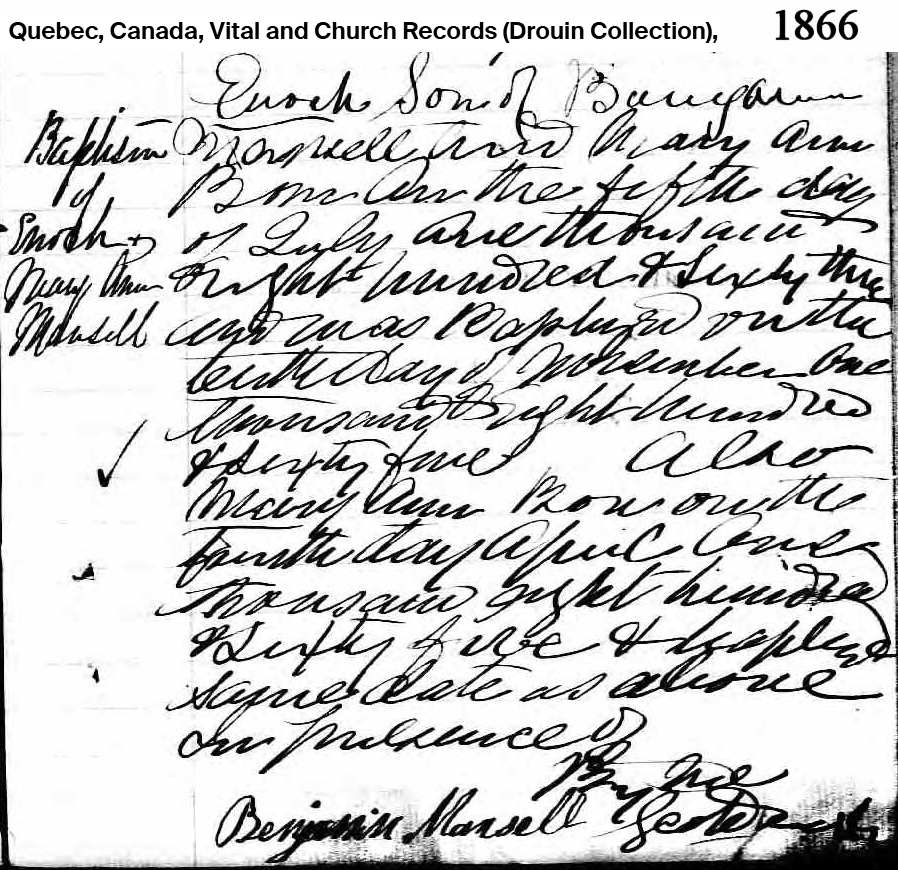 Quebec, Canada, Vital and Church Records (Drouin Collection), 1866
Baptism
of
Enoch &
Mary Ann
Mansell
Enoch Son of Benjamin
Mansell and Mary Ann
Born on the fifth day
of July one thousand
Eight hundred & Sixty three
and was Baptized on the
tenth day of November One
thousand Eight hundred
& Sixty five Also
Mary Ann Born on the
fourth day April One
thousand Eight hundred
& Sixty five & baptized
same date as above
In presence of
By Me
Benjamin Mansell